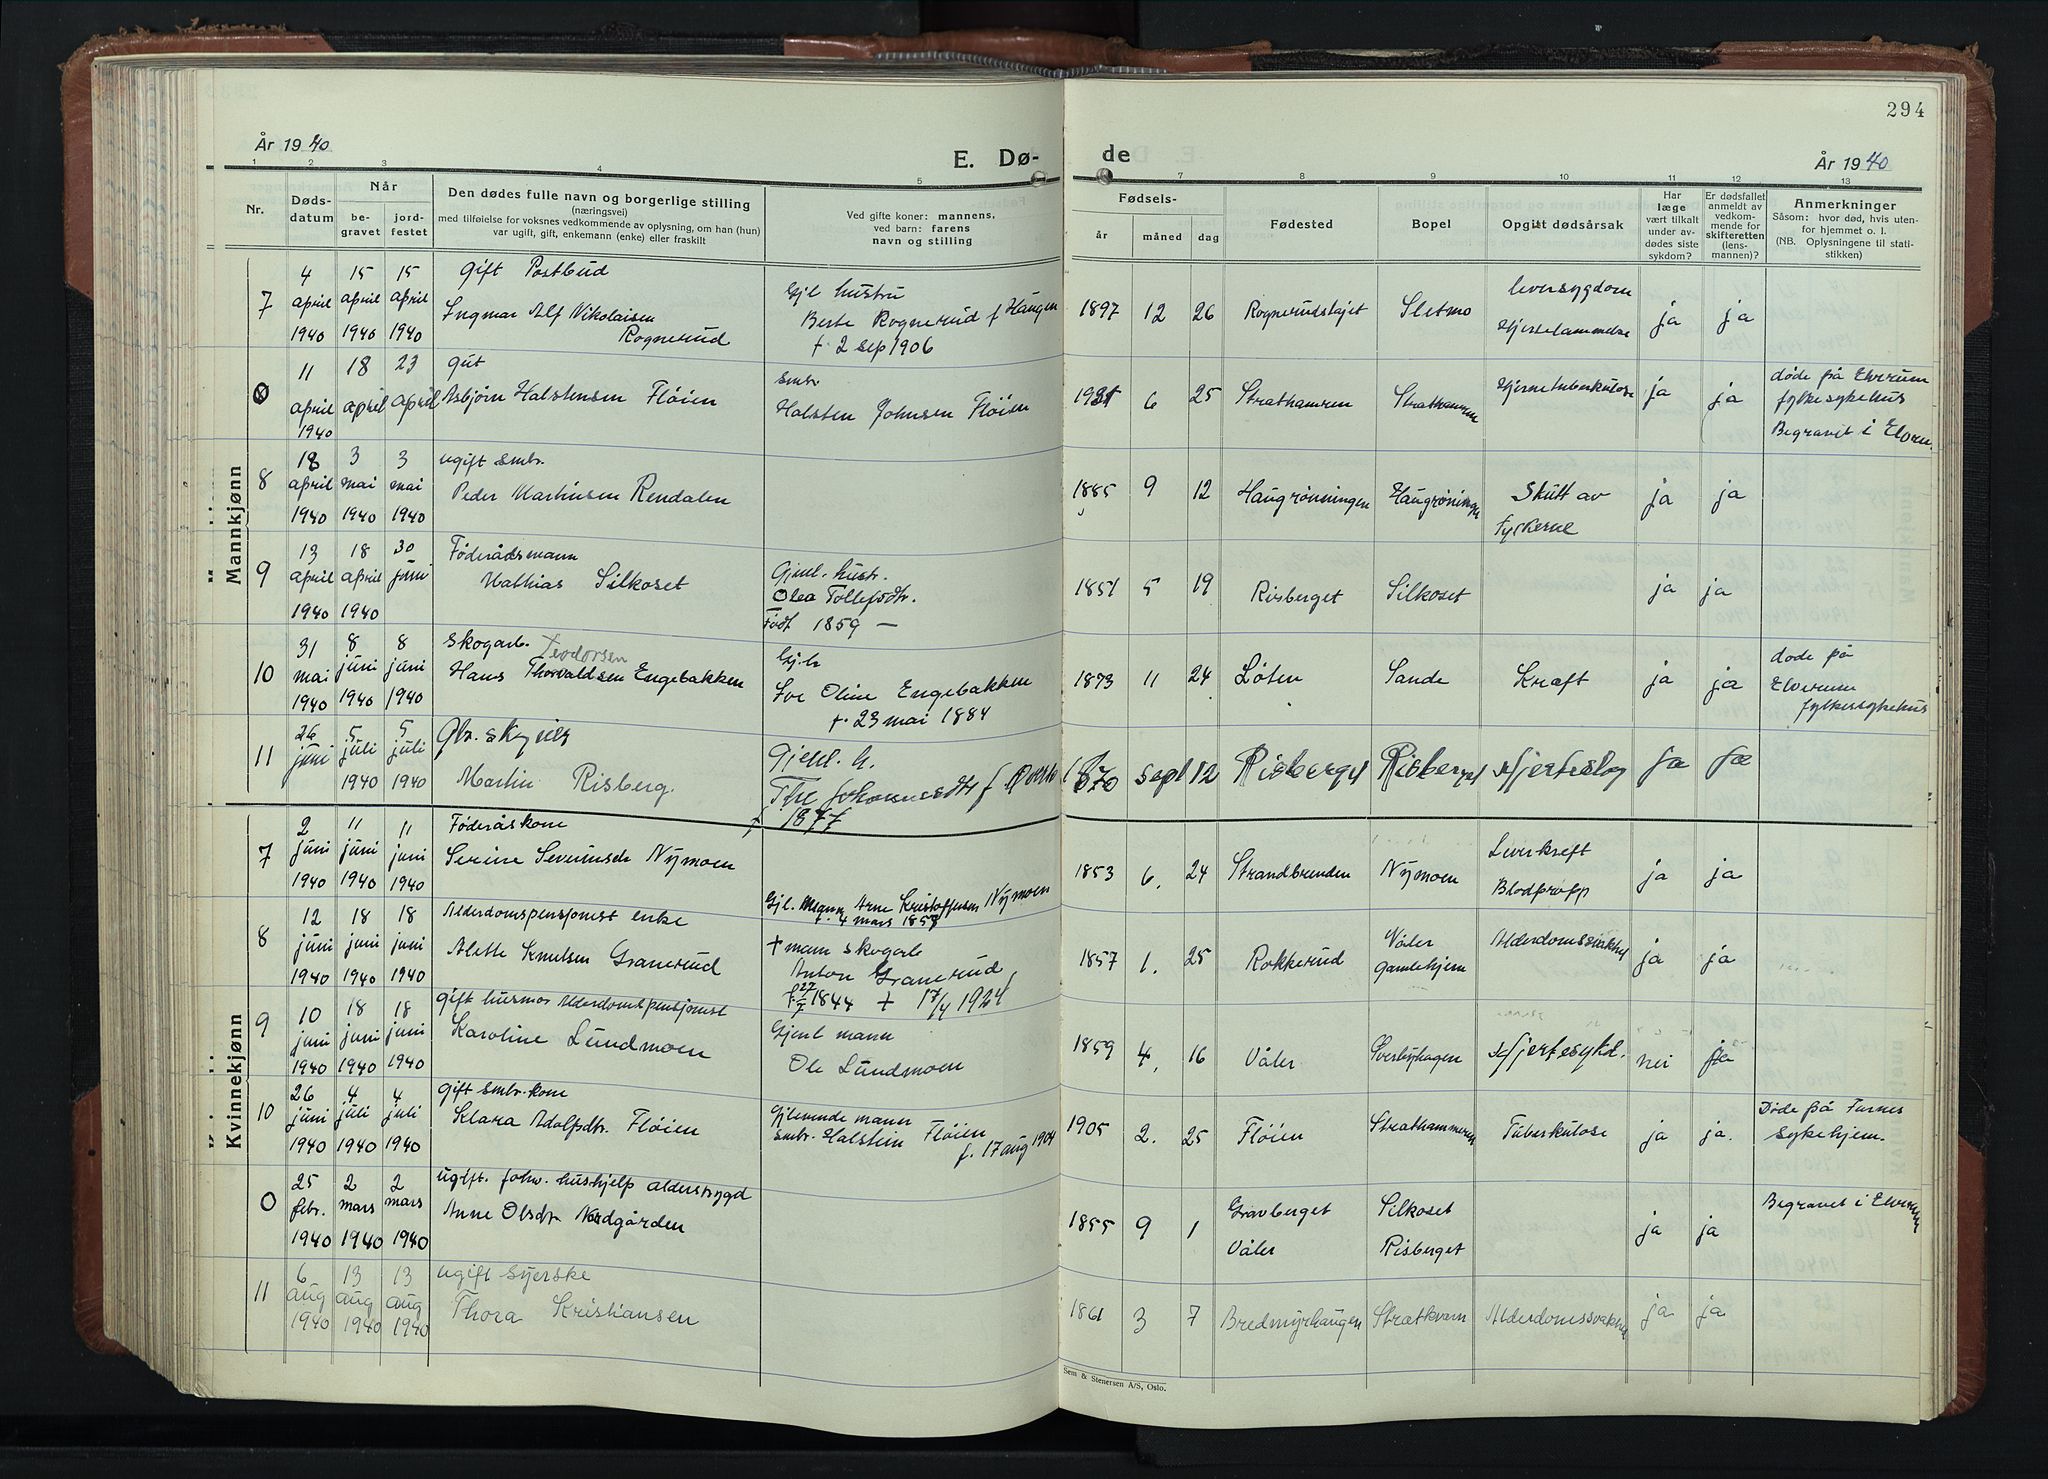 294
År 1940
E. Dø-
de
År 1940
1 2 3 4 5 7 8 9 10 11 12 13
Nr.
Døds-
datum
Når
be-
gravet
jord-
festet
Den dødes fulle navn og borgerlige stilling
(næringsvei)
med tilføielse for voksnes vedkommende av oplysning, om han (hun)
var ugift, gift, enkemann (enke) eller fraskilt
Ved gifte koner: mannens,
ved barn: farens
navn og stilling
Fødsels-
år måned dag
Fødested
Bopel
Opgitt dødsårsak
Har
læge
vært tilkalt
under av-
dødes siste
sykdom?
Er dødsfallet
anmeldt av
vedkom-
mende for
skifteretten
(lens-
mannen)?
Anmerkninger
Såsom: hvor død, hvis uten-
for hjemmet o. l.
(NB. Oplysningene til stati-
stikken)
Mannkjønn
7
4 april 1940
15 april 1940
15 april 1940
Gift Postbud
Ingmar Alf Nikolaisen
Rognerud
Gjl hustru
Berte Rognerud f Haugen
+ 2 sep 1906
1897 12 26
Rognerudstøjet
Sletmo
leversygdom
Hjertelammelse
ja ja
0
11 april 1940
18 april
23 april
gut
Asbjørn Halstensen Fløien
Smbr
Halsten Johnsen Fløien
1931 6 25
Strathamren
Strathamren
Hjernetuberkulose
ja ja
døde på Elverum
fylkesykehus
Begravet i Elverum
8
18 april 1940
3 mai 1940
3 mai 1940
ugift smbr.
Peder Martinsen Rendalen
1885 9 12
Haugrønningen
Haugrøningen
Skutt av
Tyskerne
ja ja
9
13 april 1940
18 april 1940
30 juni
Føderådsmann
Mathias Silkoset
Gjenl. hustr.
Olea Tollefsdtr.
Født 1859 —
1851 5 19
Risberget
Silkoset
ja ja
10
31 mai 1940
8 juni 1940
8 juni 1940
Skogarb. Teodorsen
Hans Thorvaldsen Engebakken
Gj.h
Eve Oline Engebakken
+ 23 mai 1884
1873 11 24
Løten
Sande
Kræft
ja ja
døde på
Elverum
fylkessykehus
11
26 juni
5 juli 1940
5 juli 1940
Gbr.
Martin Risberg.
Gjenl. h.
Johannesdtr f
f 1877
1870 sept 12
Risberget
Risberget
Hjerteslag
Ja Ja
Kvinnekjønn
7
2 juni 1940
11 juni 1940
11 juni 1940
Føderåskone
Serine Severinsdr Nymoen
Gjl. Mann Arne Kristoffersen Nymoen
f. 4 mars 1858
1853 6. 24
Strandbrenden
Nymoen
Leverkreft
Blodpropp
ja ja
8
12 juni 1940
18 juni 1940
18 juni 1940
Alderdomspensjonist enke
Alette Knutsen Granerud
+ mann skogarb
Anton Granerud,
f. 27/7 1844 + 17/4 1924
1857 1. 25
Rokkerud
Våler
Gamlehjem
Alderdomssvakhet
ja ja
9
10 juni 1940
18 juni 1940
18 juni 1940
gift husmor Alderdomspensjonist
Karoline Lundmoen
Gjenl mann
Ole Lundmoen
1859 4. 16
Våler
Sverlyhagen
Hjertesykd.
nei Ja
10
26 juni 1940
4 juli 1940
4 juli 1940
Gift Smbr. kone
Klara Adolfsdtr. Fløien
Gjlevende mann
Smbr. Halstein Fløien
f. 17 aug 1904
1905 2. 25
Fløien
Strathammeren
Tuberkulose
ja ja.
Døde på Furnes
sykehjem.
0
25 febr. 1940
2 mars 1940
2 mars 1940
ugift. forhv. hushjelp alderstrygd
Anne Olsdtr Nordgården
1855 9 1
Gravberget
Våler
Silkoset
Risberget
ja ja
Begravet i Elverum
11
6 aug 1940
13 aug 1940
13 aug 1940
ugift syerske
Thora Kristiansen
1861 3 7
Bredmyrhaugen
Strætkvern
Alderdomssvakhet
ja ja
Sem & Stenersen A/S, Oslo.